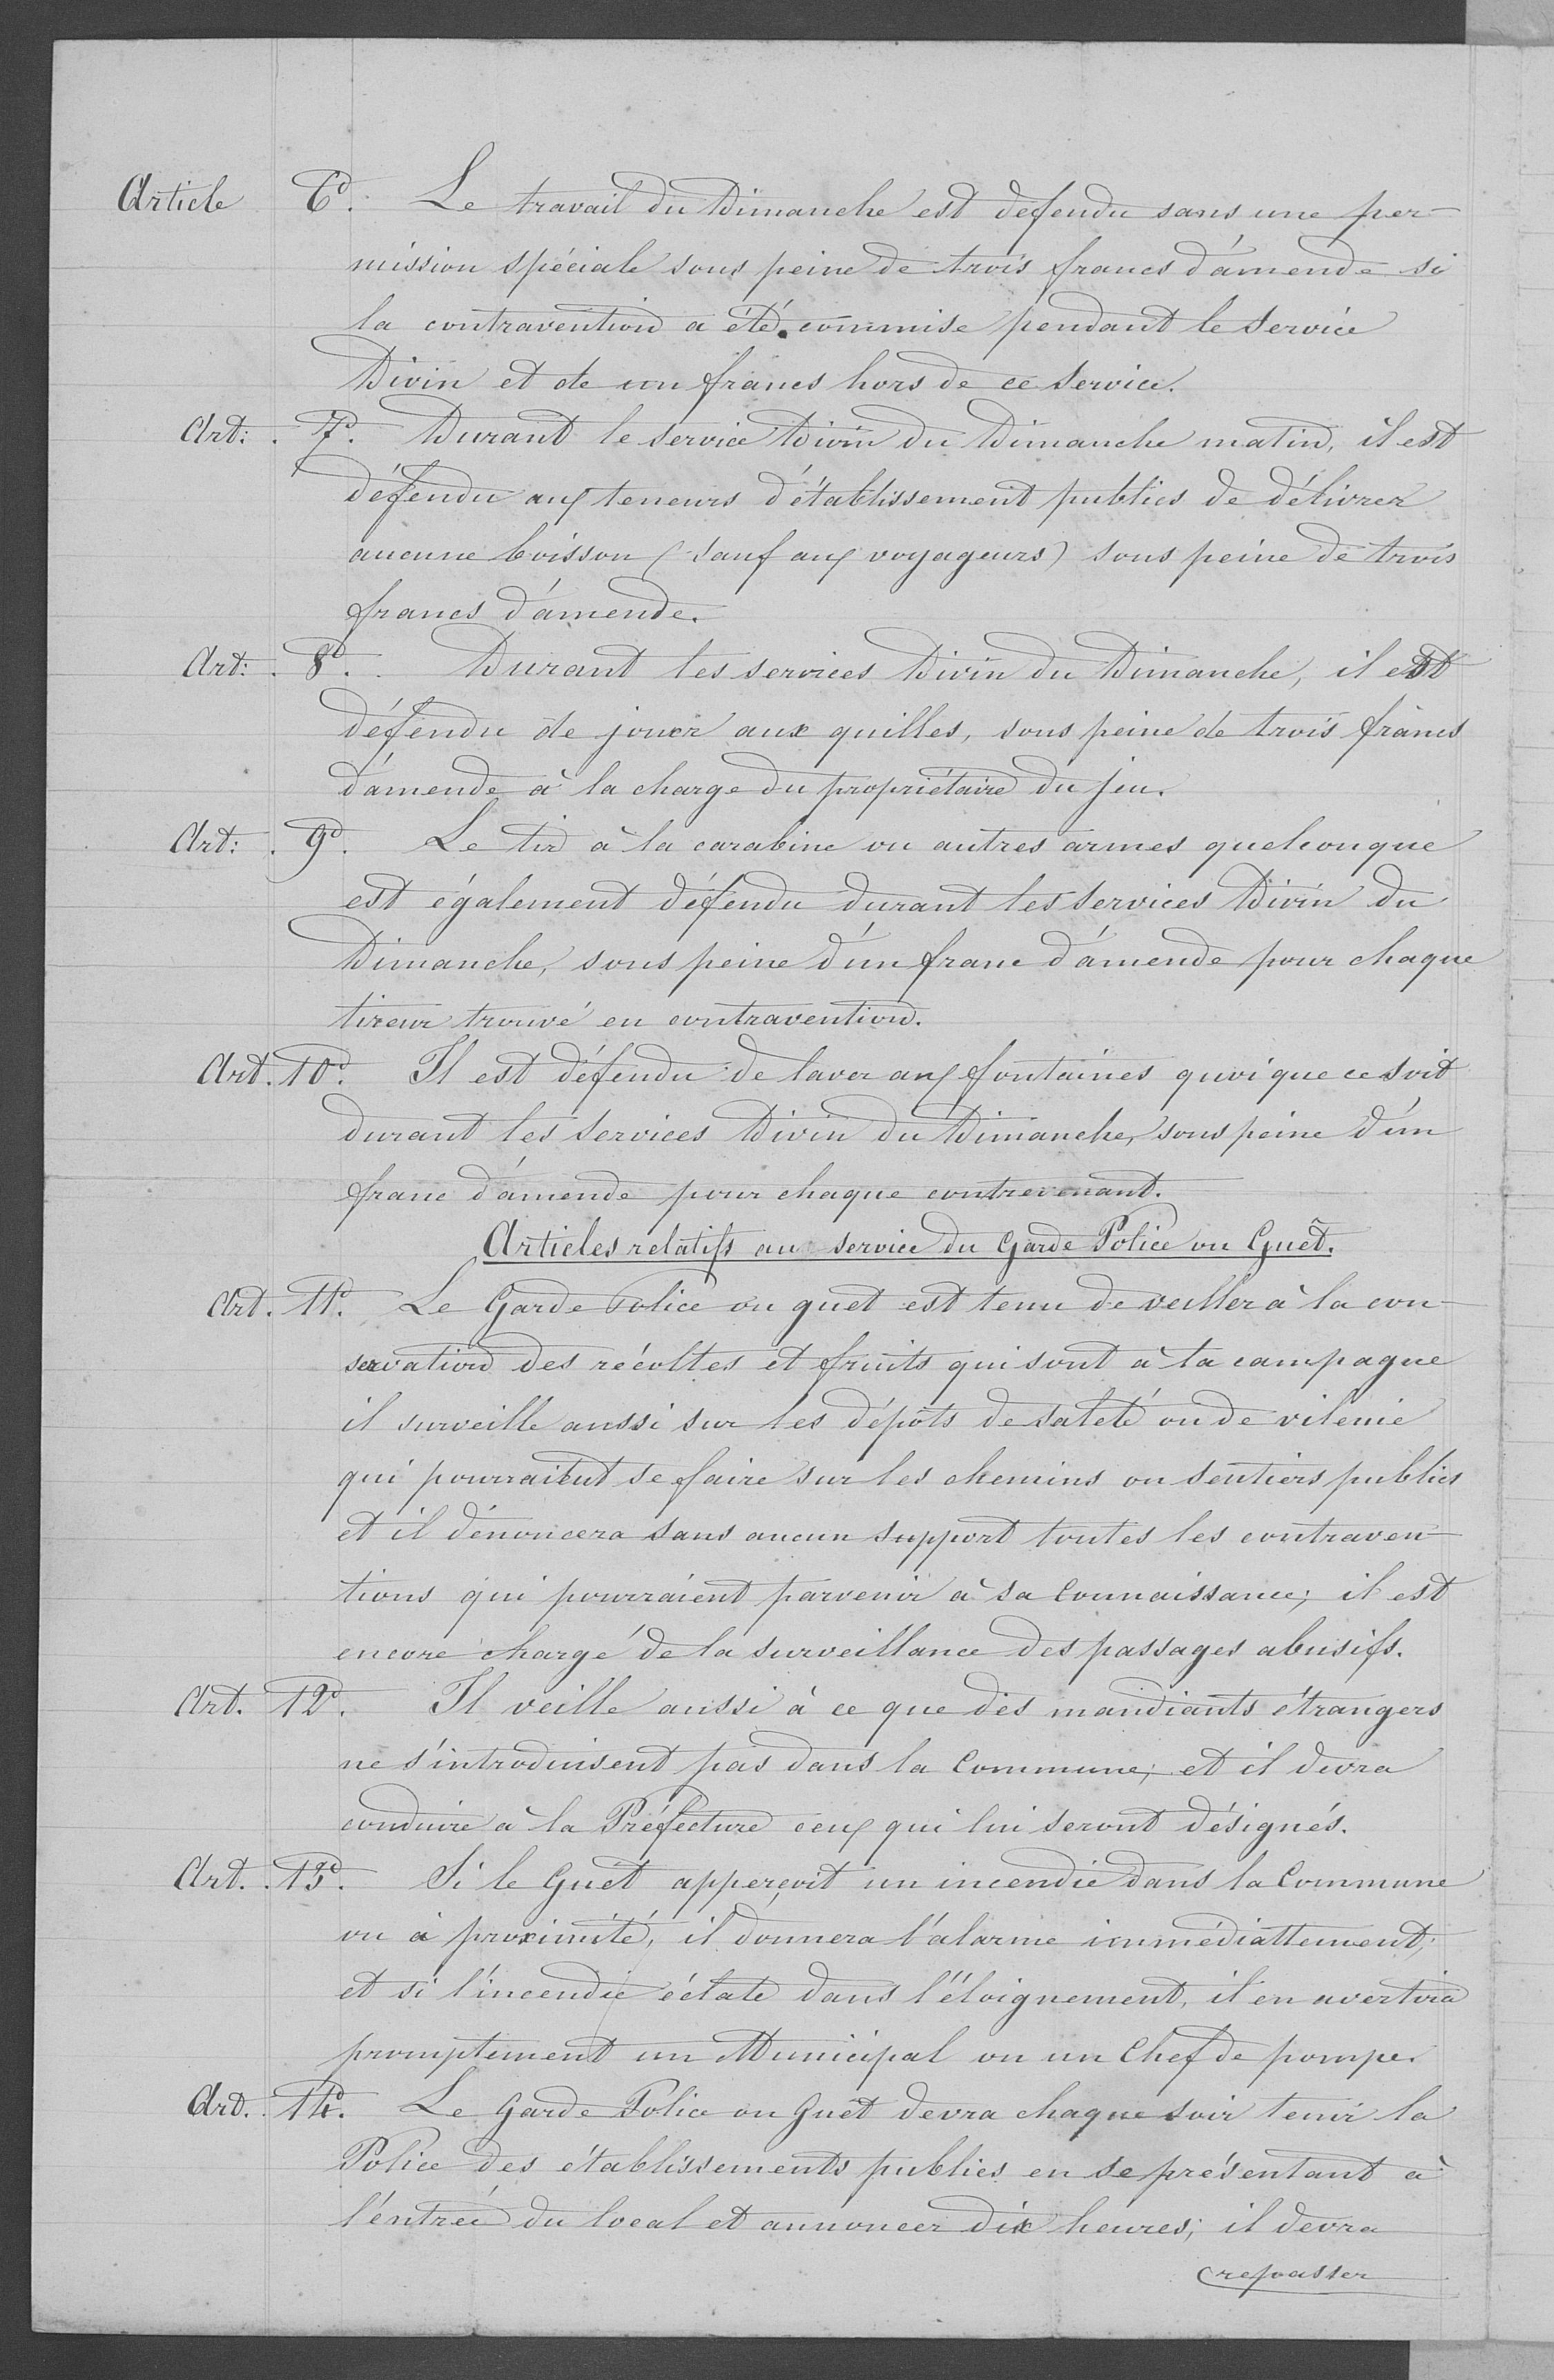 Article 6º. Le travail du Dimanche est défendu sans une per-
mission spéciale sous peine de trois francs d'amende si
la contravention a été commise pendant le service
Divin et de un francs hors de ce service.
Art: 7º. Durant le service Divin du Dimanche matin, il est
défendu aux teneurs d'établissement publics de délivrer
aucune boisson (sauf aux voyageurs) sous peine de trois
francs d'amende.
Art: 8º. Durant les services Divin du Dimanche, il est
défendu de jouer aux quilles, sous peine de trois francs
d'amende à la charge du propriétaire du jeu.
Art: 9º. Le tir à la carabine ou autres armes quelconque
est également défendu durant les services Divin du
Dimanche, sous peine d'un franc d'amende pour chaque
tireur trouvé en contravention.
Art. 10º. Il est défendu de laver aux fontaines quoi que ce soit
durant les services Divin du Dimanche, sous peine d'un
franc d'amende pour chaque contrevenant.
Articles relatifs au service du Garde Police ou Guet.
Art. 11º. Le Garde Police ou guet est tenu de veiller à la con-
servation des récoltes et fruits qui sont à la campagne
il surveille aussi sur les dépôts de saleté ou de vilenie
qui pourraient se faire sur les chemins ou sentiers publics
et il dénoncera sans aucun support toutes les contraven-
tions qui pourraient parvenir à sa connaissance; il est
encore chargé de la surveillance des passages abusifs.
Art. 12º. Il veille aussi à ce que des mandiants étrangers
ne s'introduisent pas dans la Commune; et il devra
conduire à la Préfecture ceux qui lui seront désignés.
Art. 13º. Si le Guet apperçoit un incendie dans la Commune
ou à proximité, il donnera l'alarme immédiattement;
et si l'incendie éclate dans l'éloignement, il en avertira
promptement un Municipal ou un Chef de pompe.
Art. 14º. Le Garde Police ou Guet devra chaque soir tenir la
Police des établissements publics en se présentant à
l'entrée du local et annoncer dix heures; il devra
repasser